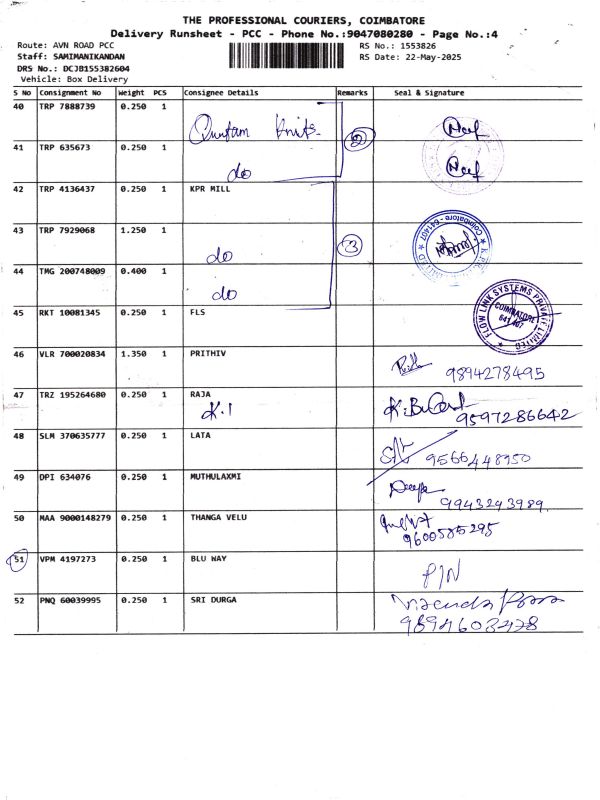 THE PROFESSIONAL COURIERS, COIMBATORE
Delivery Runsheet - PCC - Phone No.:9047080280 - Page No.:4
Route: AVN ROAD PCC
RS No.: 1553826
Staff: SAMIMANIKANDAN
RS Date: 22-May-2025
DRS No.: DCJB155382604
Vehicle: Box Delivery
S No Consignment No Weight PCS Consignee Details Remarks Seal & Signature
40 TRP 7888739 0.250 1
Knits
2
41 TRP 635673 0.250 1
do
42 TRP 4136437 0.250 1 KPR MILL
43 TRP 7929068 1.250 1
do
3
Coimbatore - 641407
44 TMG 200748009 0.400 1
do
45 RKT 10081345 0.250 1 FLS
FLOW LINK SYSTEMS PRIVATE LIMITED
COIMBATORE
641 407
46 VLR 700020834 1.350 1 PRITHIV
9894278495
47 TRZ 195264680 0.250 1 RAJA
K.1
9597286642
48 SLM 370635777 0.250 1 LATA
9566448950
49 DPI 634076 0.250 1 MUTHULAXMI
Deepa
9943293989
50 MAA 9000148279 0.250 1 THANGA VELU
9600585295
51 VPM 4197273 0.250 1 BLU WAY
P/N
52 PNQ 60039995 0.250 1 SRI DURGA
9894603478